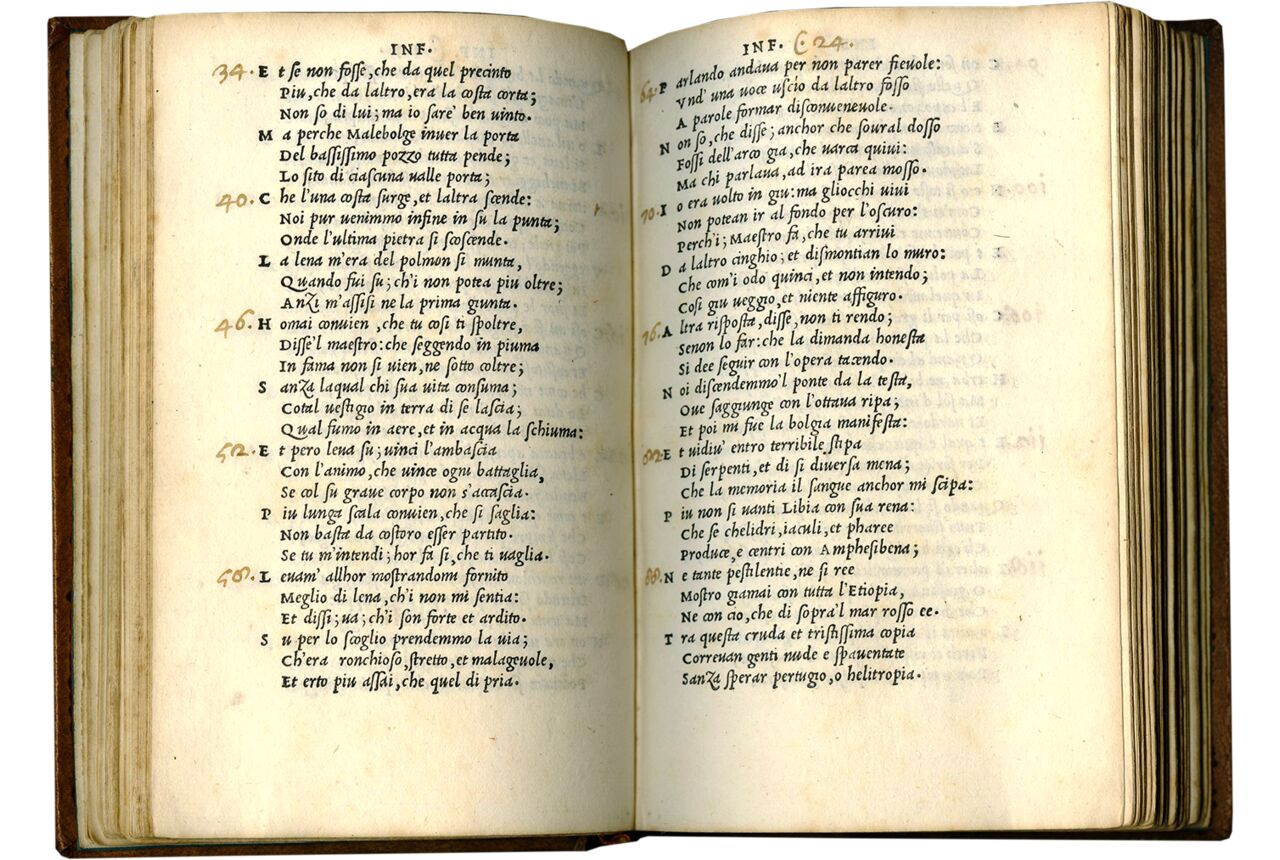 INF.
34. E t se non fosse, che da quel precinto
Piu, che da laltro, era la costa corta;
Non so di lui; ma io sare' ben uinto.
M a perche Malebolge inuer la porta
Del bassissimo pozzo tutta pende;
Lo sito di ciascuna ualle porta;
40. C he l'una costa surge, et laltra scende:
Noi pur uenimmo infine in su la punta;
Onde l'ultima pietra si scoscende.
L a lena m'era del polmon si munta,
Quando fui su; ch'i non potea piu oltre;
Anzi m'assisi ne la prima giunta.
46. H omai conuien, che tu cosi ti spoltre,
Disse'l maestro: che seggendo in piuma
In fama non si uien, ne sotto coltre;
S anza laqual chi sua uita consuma;
Cotal uestigio in terra di se lascia;
Qual fumo in aere, et in acqua la schiuma:
52. E t pero leua su; uinci l'ambascia
Con l'animo, che uince ogni battaglia,
Se col su graue corpo non s'accascia.
P iu lunga scala conuien, che si saglia:
Non basta da costoro esser partito.
Se tu m'intendi; hor fa si, che ti uaglia.
58. L euam' allhor mostrandomi fornito
Meglio di lena, ch'i non mi sentia:
Et dissi; ua; ch'i son forte et ardito.
S u per lo scoglio prendemmo la uia;
Ch'era ronchioso, stretto, et malageuole,
Et erto piu assai, che quel di pria.
INF. C. 24.
64. P arlando andaua per non parer fieuole:
Vnd' una uoce uscio da laltro fosso
A parole formar disconueneuole.
N on so, che disse; anchor che soural dosso
Fossi dell'arco gia, che uarca quiui:
Ma chi parlaua, ad ira parea mosso.
70. I o era uolto in giu: ma gliocchi uiui
Non potean ir al fondo per l'oscuro:
Perch'i; Maestro fa, che tu arriui
D a laltro cinghio; et dismontian lo muro:
Che com'i odo quinci, et non intendo;
Cosi giu ueggio, et niente affiguro.
76. A ltra risposta, disse, non ti rendo;
Senon lo far: che la dimanda honesta
Si dee seguir con l'opera tacendo.
N oi discendemmo'l ponte da la testa,
Oue saggiunge con l'ottaua ripa;
Et poi mi fue la bolgia manifesta:
82. E t uidiu' entro terribile stipa
Di serpenti, et di si diuersa mena;
Che la memoria il sangue anchor mi scipa:
P iu non si uanti Libia con sua rena:
Che se chelidri, iaculi, et pharee
Produce, e centri con Amphesibena;
88. N e tante pestilentie, ne si ree
Mostro giamai con tutta l'Etiopia,
Ne con cio, che di sopra'l mar rosso ee.
T ra questa cruda et tristissima copia
Correuan genti nude e spauentate
Sanza sperar pertugio, o helitropia.